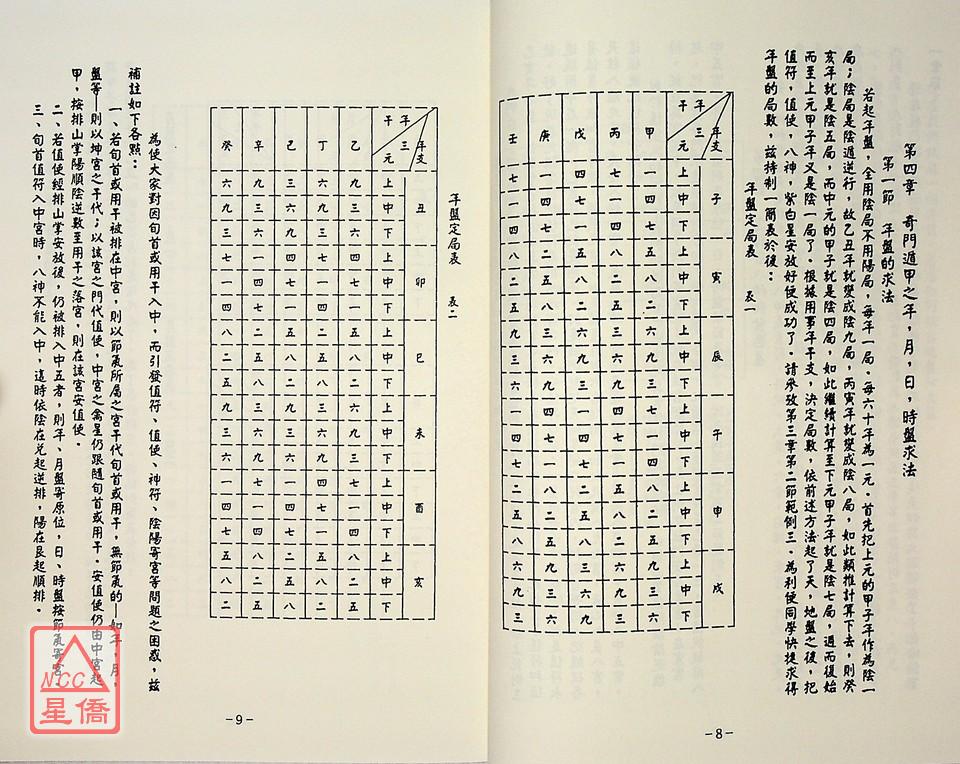 第四章　奇門遁甲之年，月，日，時盤求法
第一節　年盤的求法
若起年盤，全用陰局不用陽局，每年一局．每六十年為一元．首先把上元的甲子年作為陰一
局；陰局是陰遁逆行，故乙丑年就變成陰九局，丙寅年就變成陰八局，如此類推計算下去，則癸
亥年就是陰五局，而中元的甲子就是陰四局，如此繼續計算至下元甲子年就是陰七局，週而復始
而至上元甲子年又是陰一局了．根據用事年干支，決定局數，依前述方法起了天，地盤之後，把
值符，值使，八神，紫白星安放好便成功了．請參攷第三章第二節範例三．為利便同學快捷求得
年盤的局數，茲特制一簡表於後：
年盤定局表　表一
年支 子 寅 辰 午 申 戌
三元 上中下 上中下 上中下 上中下 上中下 上中下
年干
甲 一四七 五八二 六九三 七一四 八二五 九三六
丙 七一四 八二五 三六九 四七一 五八二 六九三
戊 四七一 五八二 六九三 一四七 二五八 三六九
庚 一四七 二五八 三六九 四七一 八二五 九三六
壬 七一四 八二五 九三六 一四七 二五八 六九三
-8-
年盤定局表　表二
年支 丑 卯 巳 未 酉 亥
三元 上中下 上中下 上中下 上中下 上中下 上中下
年干
乙 九三六 四七一 五八二 六九三 七一四 八二五
丁 六九三 七一四 二五八 三六九 四七一 五八二
己 三六九 四七一 五八二 九三六 一四七 二五八
辛 九三六 一四七 二五八 三六九 七一四 八二五
癸 六九三 七一四 八二五 九三六 一四七 五八二
為使大家對因旬首或用干入中，而引發值符、值使、神符、陰陽寄宮等問題之困惑，茲
補註如下各點：
一、若旬首或用干被排在中宮，則以節氣所屬之宮干代旬首或用干，無節氣的─如年，月，
盤等─則以坤宮之干代；以該宮之門代值使，中宮之禽星仍跟隨旬首或用干．安值使仍由中宮起
甲，按排山掌陽順陰逆數至用干之落宮，則在該宮安值使．
二、若值使經排山掌安放後，仍被排入中五者，則年、月盤寄原位，日、時盤按節氣寄宮．
三、旬首值符入中宮時，八神不能入中，這時依陰在兌起逆排，陽在艮起順排．
-9-
NCC
星僑